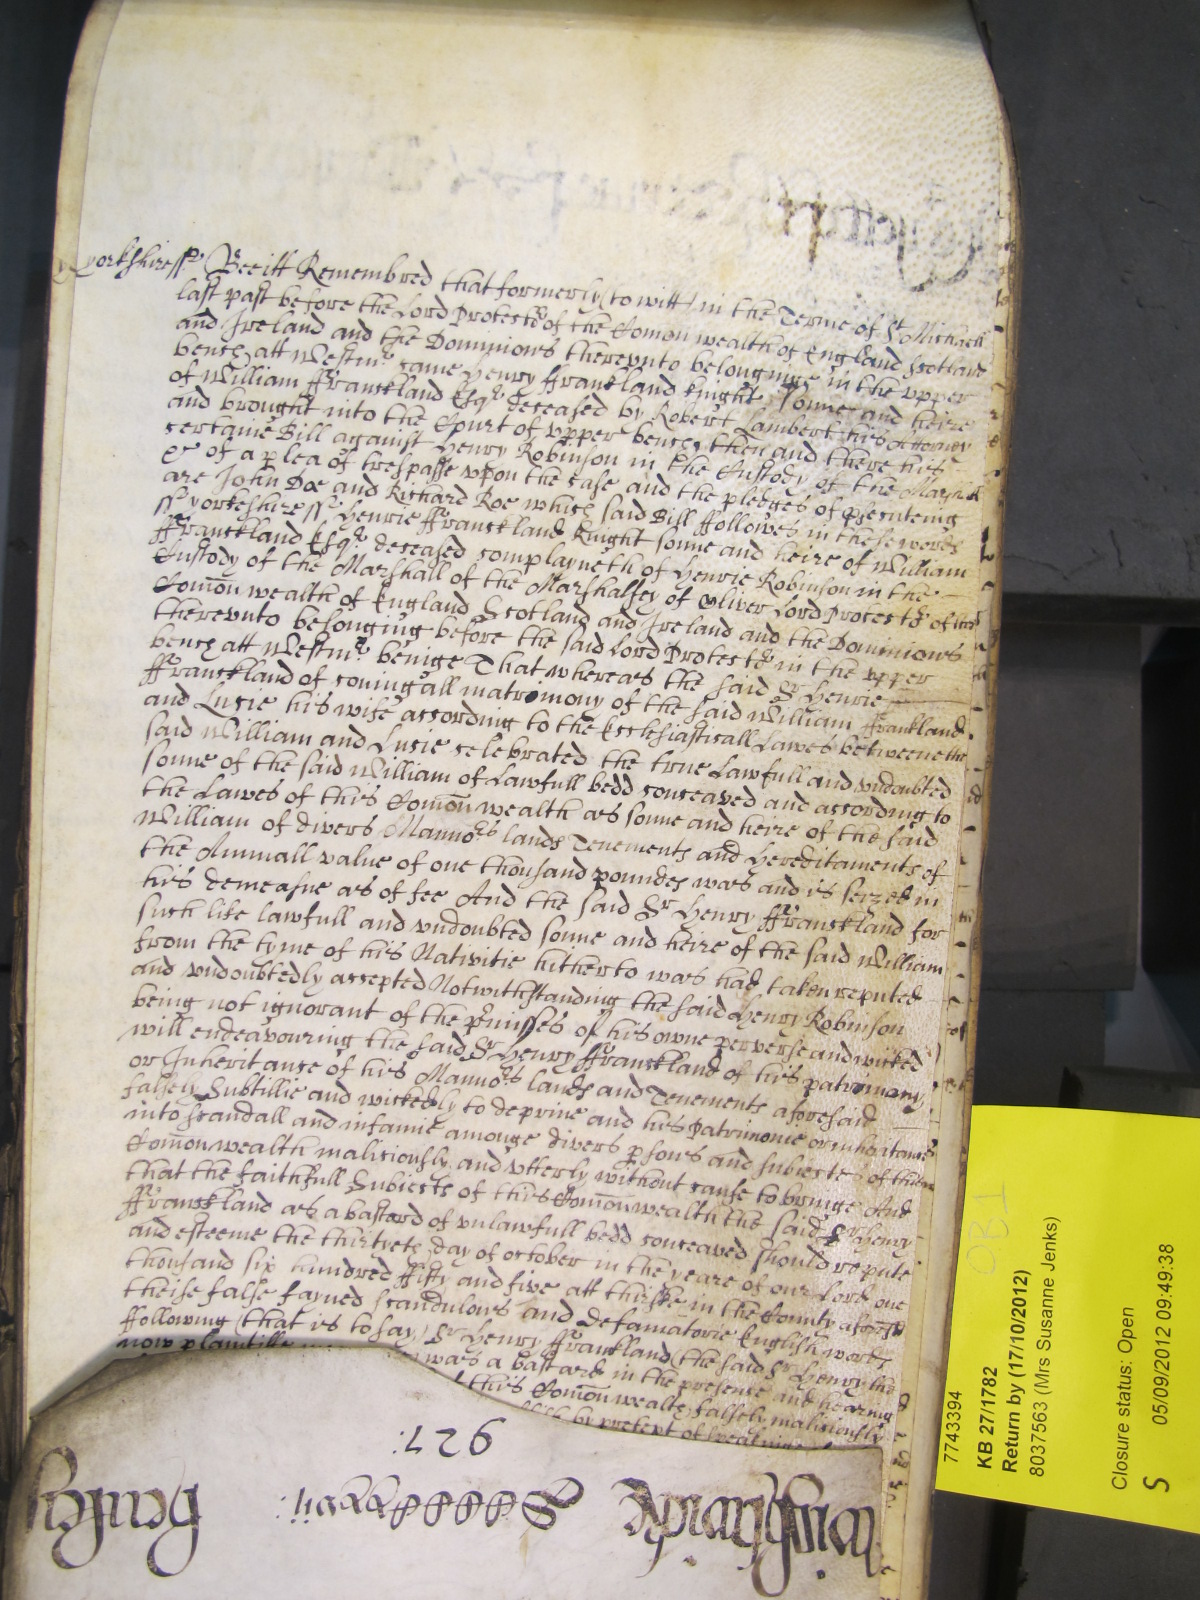 yorkshire ss Bee itt Remembred that formerly (to witt) in the Terme of St Michaell
last past before the Lord Protector of the Comon wealth of England Scotland
and Ireland and the Dominions therevnto belonginge in the vpper
bench att Westmr came Henry ffranckland knight Sonne and heire
of William ffranckland Esqr deceased by Robert Lambert his Attorney
and brought into the Court of vpper bench then and there his
certaine Bill against Henry Robinson in the Custody of the Marshall
&c of a plea of trespasse vpon the case and the pledges of psecuteing
are John Doe and Richard Roe which said Bill ffollowes in these words
ss yorkeshire ss Henrie ffranckland knight sonne and heire of William
ffranckland Esqr deceased complayneth of Henrie Robinson in the
Custody of the Marshall of the Marshalsey of Oliver Lord Protector of the
Comon wealth of England Scotland and Ireland and the Dominions
therevnto belonging before the said Lord Protector in the vpper
bench att Westmr beinge That whereas the said Sr Henrie
ffranckland of coniugall matrimony of the said William ffrankland
and Lucie his wife according to the Ecclesiasticall Lawes betweene the
said William and Lucie celebrated the true Lawfull and vndoubted
sonne of the said William of Lawfull bedd conceaved and according to
the Lawes of this Comon wealth as sonne and heire of the said
William of divers Mannors lands Tenements and Hereditaments of
the Annuall value of one thousand poundes was and is seized in
his demeasne as of fee And the said Sr Henry ffranckland for
such like lawfull and vndoubted sonne and heire of the said William
from the tyme of his Nativitie hitherto was had taken reputed
and vndoubtedly accepted Notwithstanding the said Henry Robinson
being not ignorant of the pmisses of his owne perverse and wicked
will endeavouring the said Sr Henry ffranckland of his patrimony
or Inheritance of his Mannors lands and Tenements aforesaid
falsely Subtillie and wickedly to deprive and his Patrimonie or inheritance
into scandall and infamie amonge divers psons and subiects of this
Comon wealth maliciously and vtterly without cause to bringe And
that the faithfull Subiects of this Comon wealth the said Sr Henry
ffranckland as a bastard of vnlawfull bedd conceaved should repute
and esteeme the thirtyeth day of october in the yeare of our Lord one
thousand six hundred ffifty and five att Thirske in the County aforesd
theise false fayned scandulous and defamatorie English words
following (that is to say) Sr Henry ffranckland (the said Sr Henry the
now plaintiffe was a bastard in the presence and hearing
this Comon wealth falsely maliciously
by pretext of
927
7743394
KB 27/1782
Return by (17/10/2012)
8037563 (Mrs Susanne Jenks)
Closure status: Open
05/09/2012 09:49:38
S